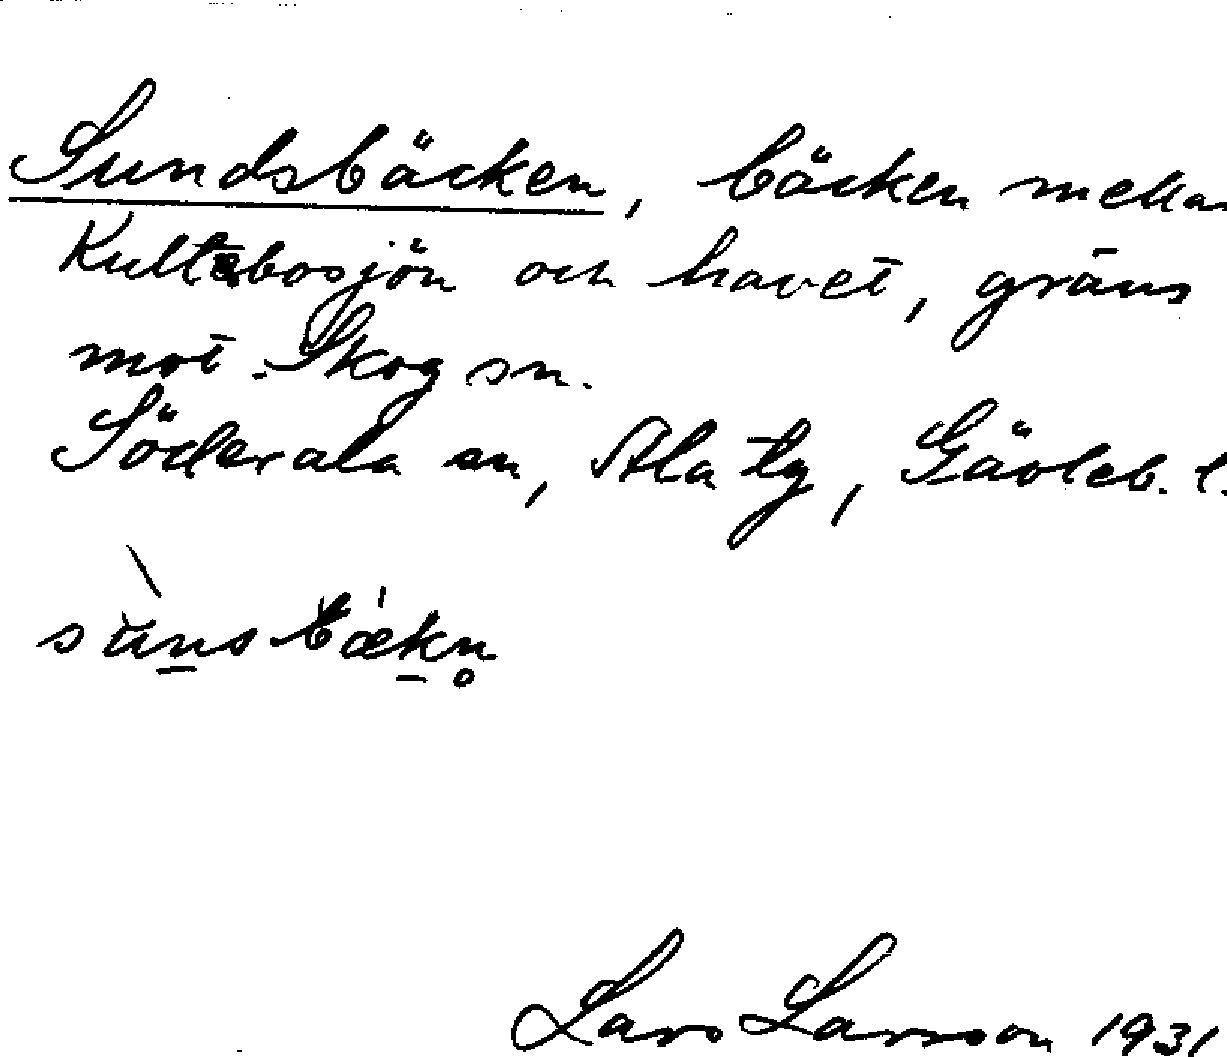 Sundsbäcken, bäcken mellan
Kultebosjön och havet, gräns
mot Skog sn.
Söderala sn, Ala tg, Gävleb. l.
Lars Larsson 1931